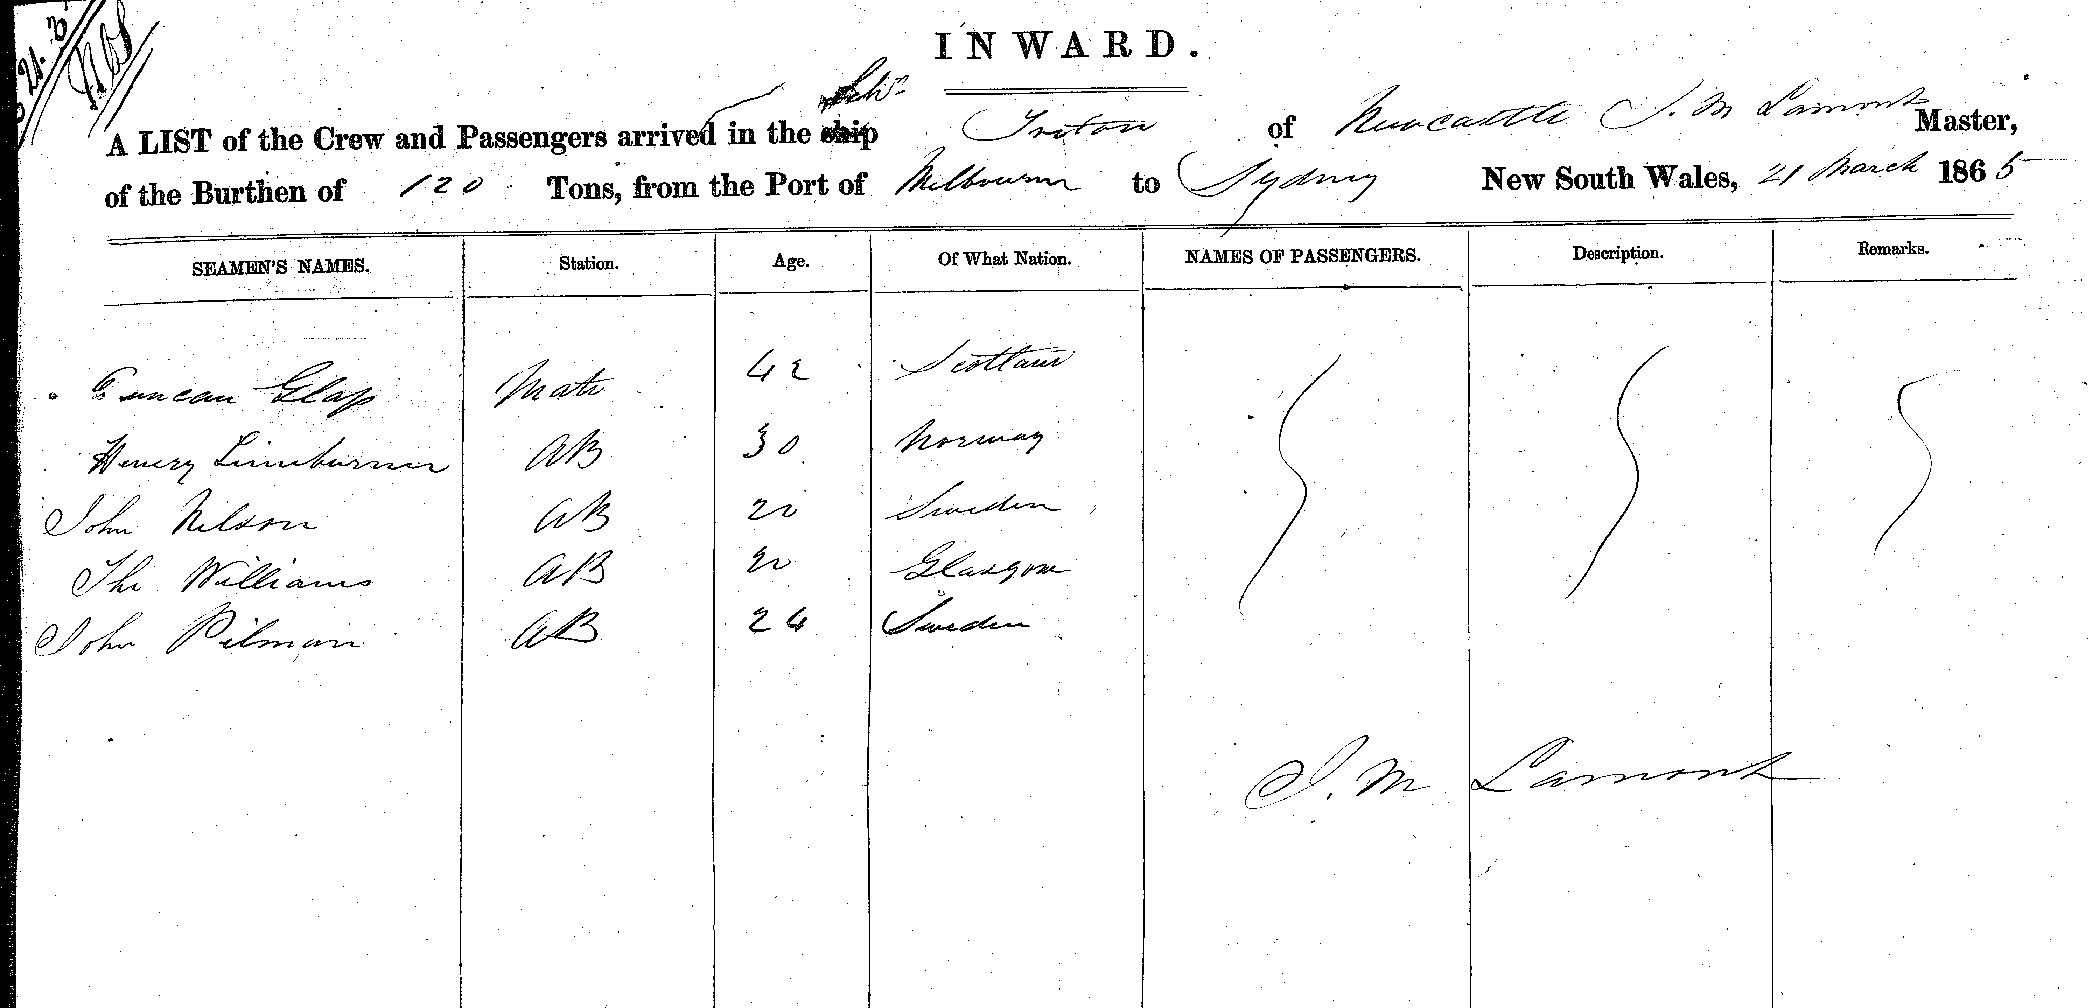 INWARD.
A LIST of the Crew and Passengers arrived in the ship Schr Triton of Newcastle J. M Lamont Master,
of the Burthen of 120 Tons, from the Port of Melbourne to Sydney New South Wales, 21 March 1865
SEAMEN'S NAMES. Station. Age. Of What Nation. NAMES OF PASSENGERS. Description. Remarks.
Duncan Glass Mate 42 Scotland
Henery Limeburner AB 30 Norway
John Nilson AB 20 Sweden
Tho Williams AB 20 Glasgow
John Pilman AB 24 Sweden
J. M Lamont